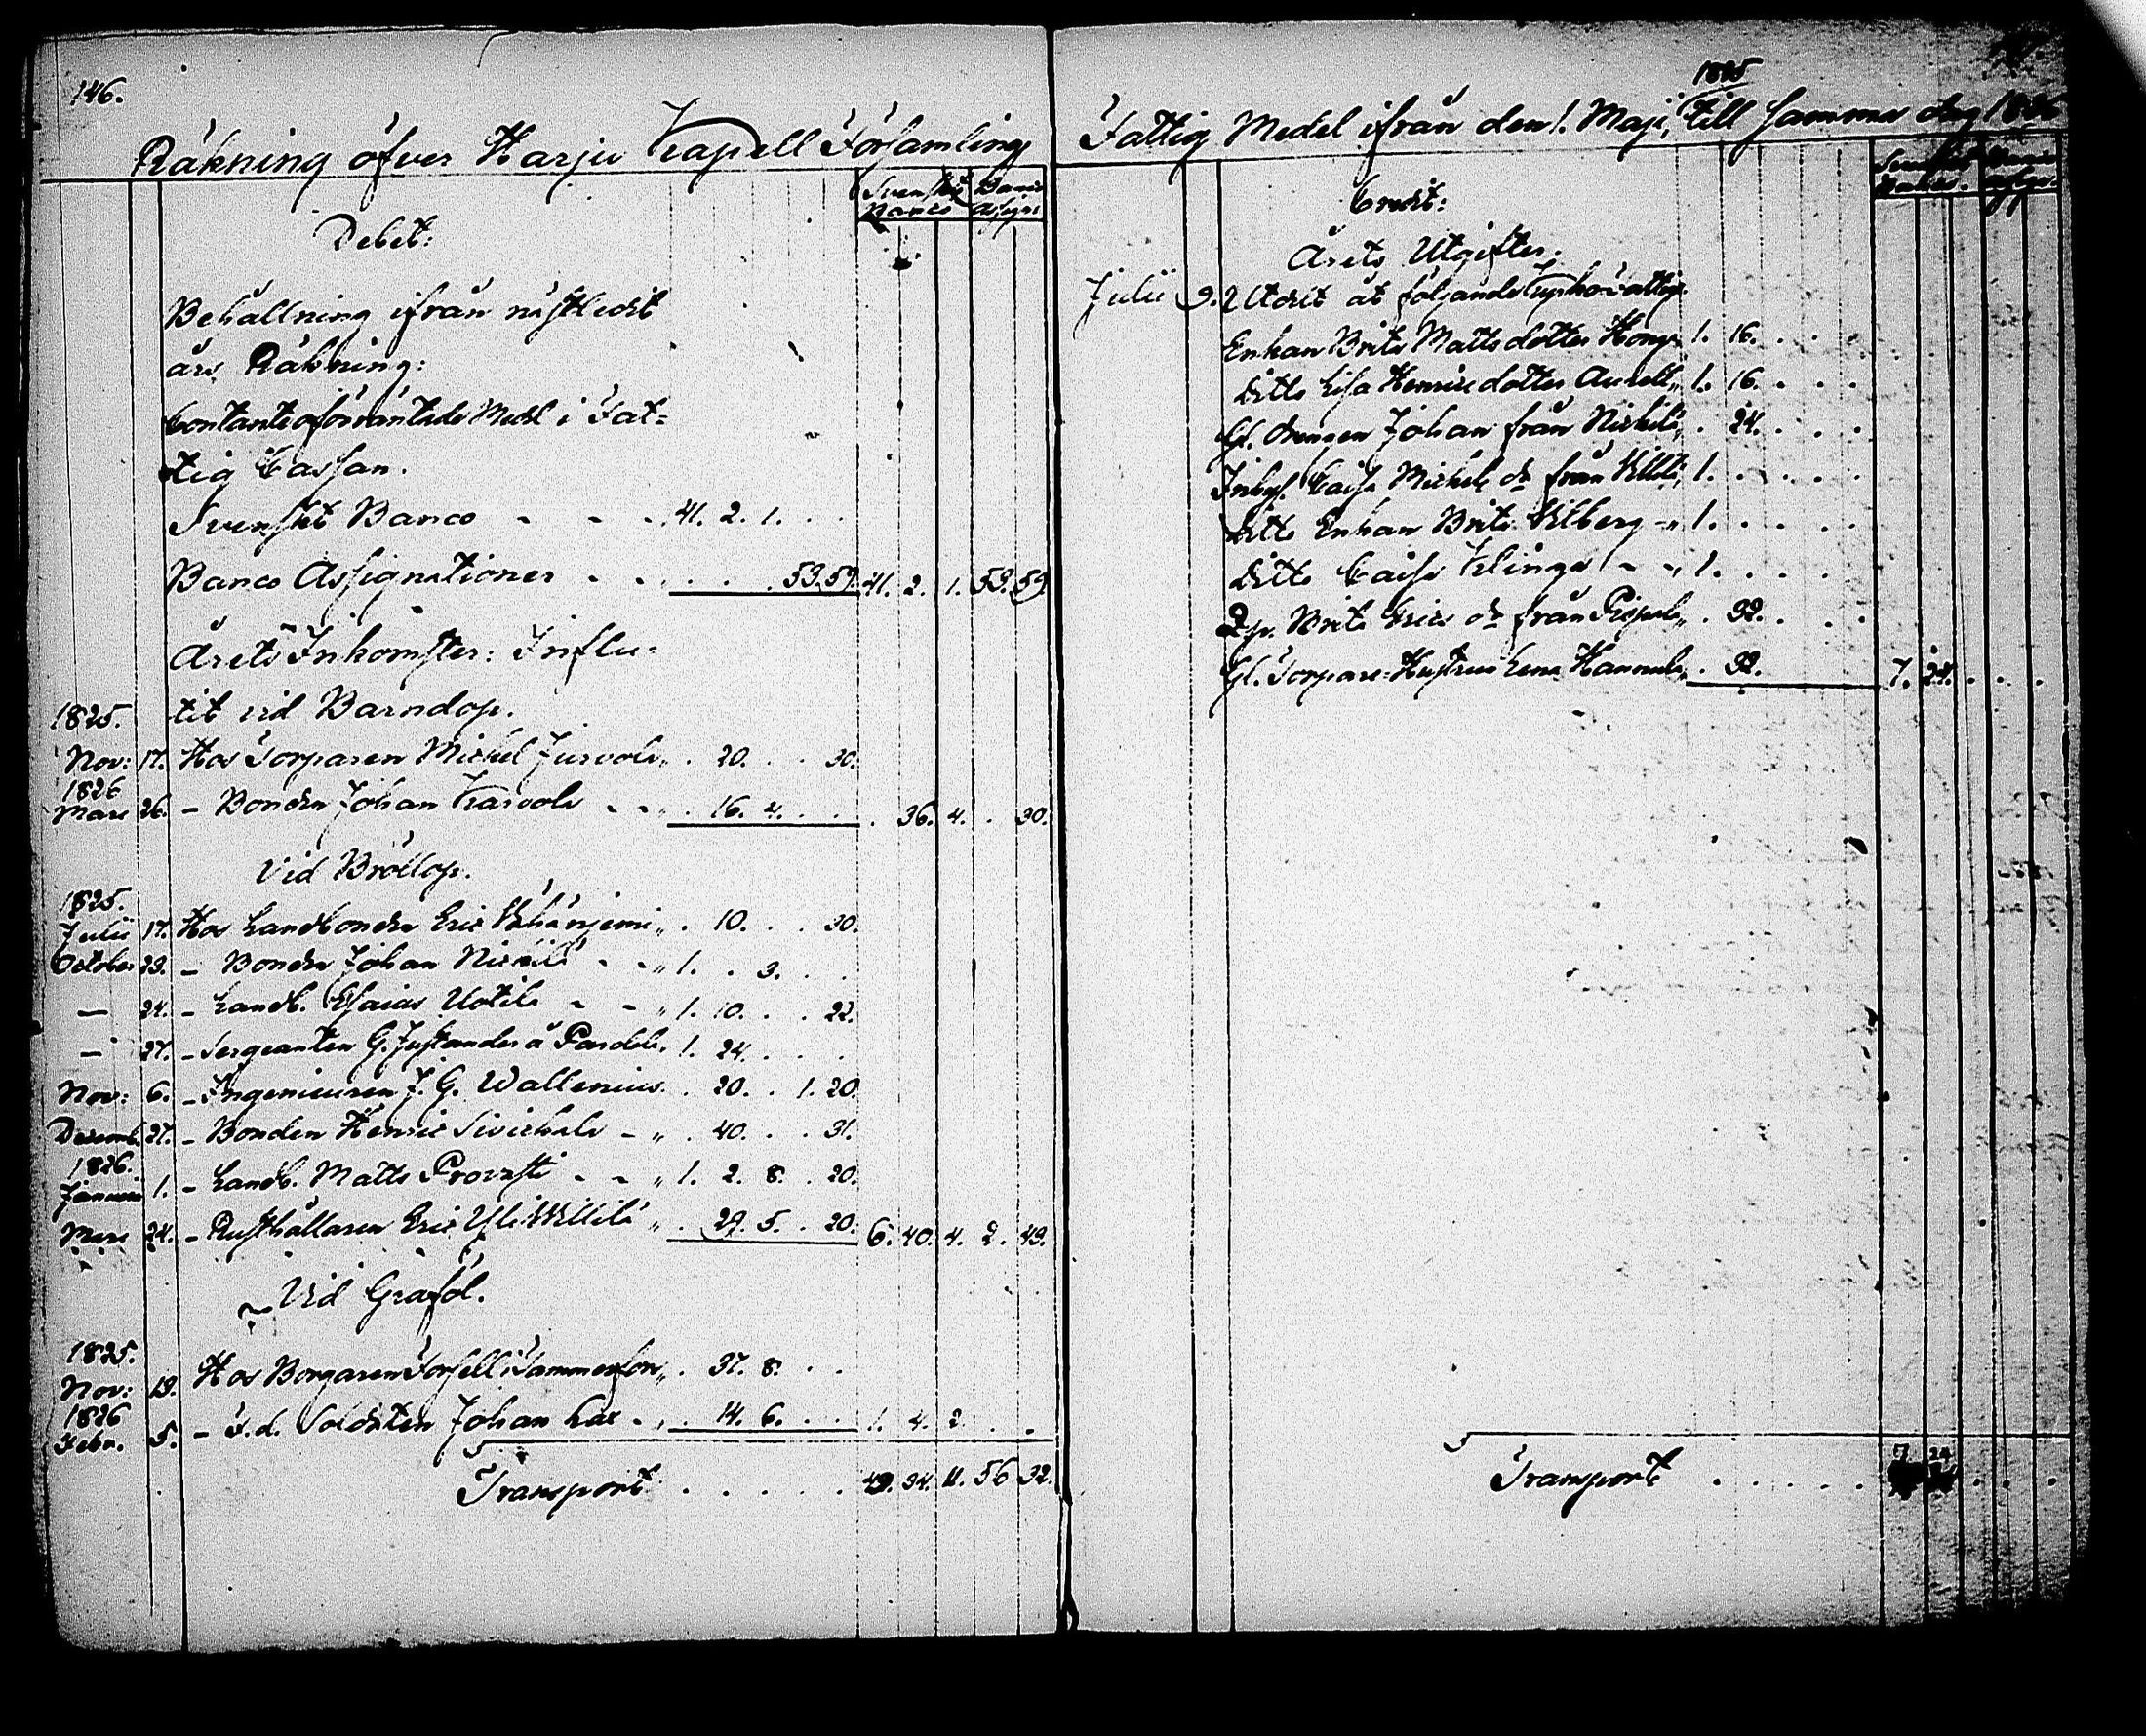 146.
Räkning öfver Harju Capell Församling
Svenskt Banco
Banco Assign:
Debet:
Behållning ifrån nästledit
års Räkning:
Contante oförräntade Medel i Fat-
tig Cassan.
Svenskt Banco - - - 41. 2. 1. . .
Banco Assignationer - - . . . 53. 59. 41. 2. 1. 53. 59.
Årets Inkomster: Influ-
tit vid Barndop.
1825.
Nov: 17. Hos Torparen Michel Jusvola „ . 20. . . 30.
1826
Mars 26. - Bonden Johan Karvola - - „ . 16. 4. . . . 36. 4. . 30.
Vid Bröllop.
1825.
Julii 17. Hos Landbonden Eric Vähänjemi „ . 10. . . 30.
October 23. - Bonden Johan Nickilä - - „ 1. . 3. . .
— 24. - Landb. Esaias Uotila - - „ 1. 10. . . 22.
— 27. - Sergeanten G. Justander å Pardola. 1. 24. . . .
Nov: 6. - Ingenieuren J. G. Wallenius . 20. . 1. 20.
Decemb. 27. - Bonden Henric Sivickala - „ . 40. . . 31.
1826.
Januarii 1. - Landb. Matts Provasti - - „ 1. 2. 8. . 20.
Mars 24. - Rusthållaren Eric Yli Willilä „ . 29. 5. . 20. 6. 40. 4. 2. 43.
Vid Graföl.
1825.
Nov: 13. Hos Borgaren Forsell i Tammerfors „ . 37. 8. . .
1826
Febr. 5. - F.d. Soldaten Johan Lax - „ . 14. 6. . . 1. 4. 2. . .
Transport . . . . . 49. 34. 11. 56 32.
1825
Fattig Medel ifrån den 1. Maji, till samma dag 1826
Svenskt Banco.
Banco Assign:
Credit:
Årets Utgifter.
Julii 3. Utdelt åt följande
Enkan Brita Matts dotter 1. 16. . . .
ditto Lisa Henrics dotter 1. 16. . . .
Gl. drengen Johan från Nickilä „ . 24. . . .
Inhys. Caisa Michels dr från Willilä „ 1. . . . .
ditto Enkan Brita Vilberg - „ 1. . . . .
ditto Caisa Klinga - - „ 1. . . . .
Brita Erics dr från „ . 32. . . .
Gl. Torpare-Hustrun Lena Hannula „ . 32. 7. 24. . . .
Transport . . . . . 7. 24 . . .